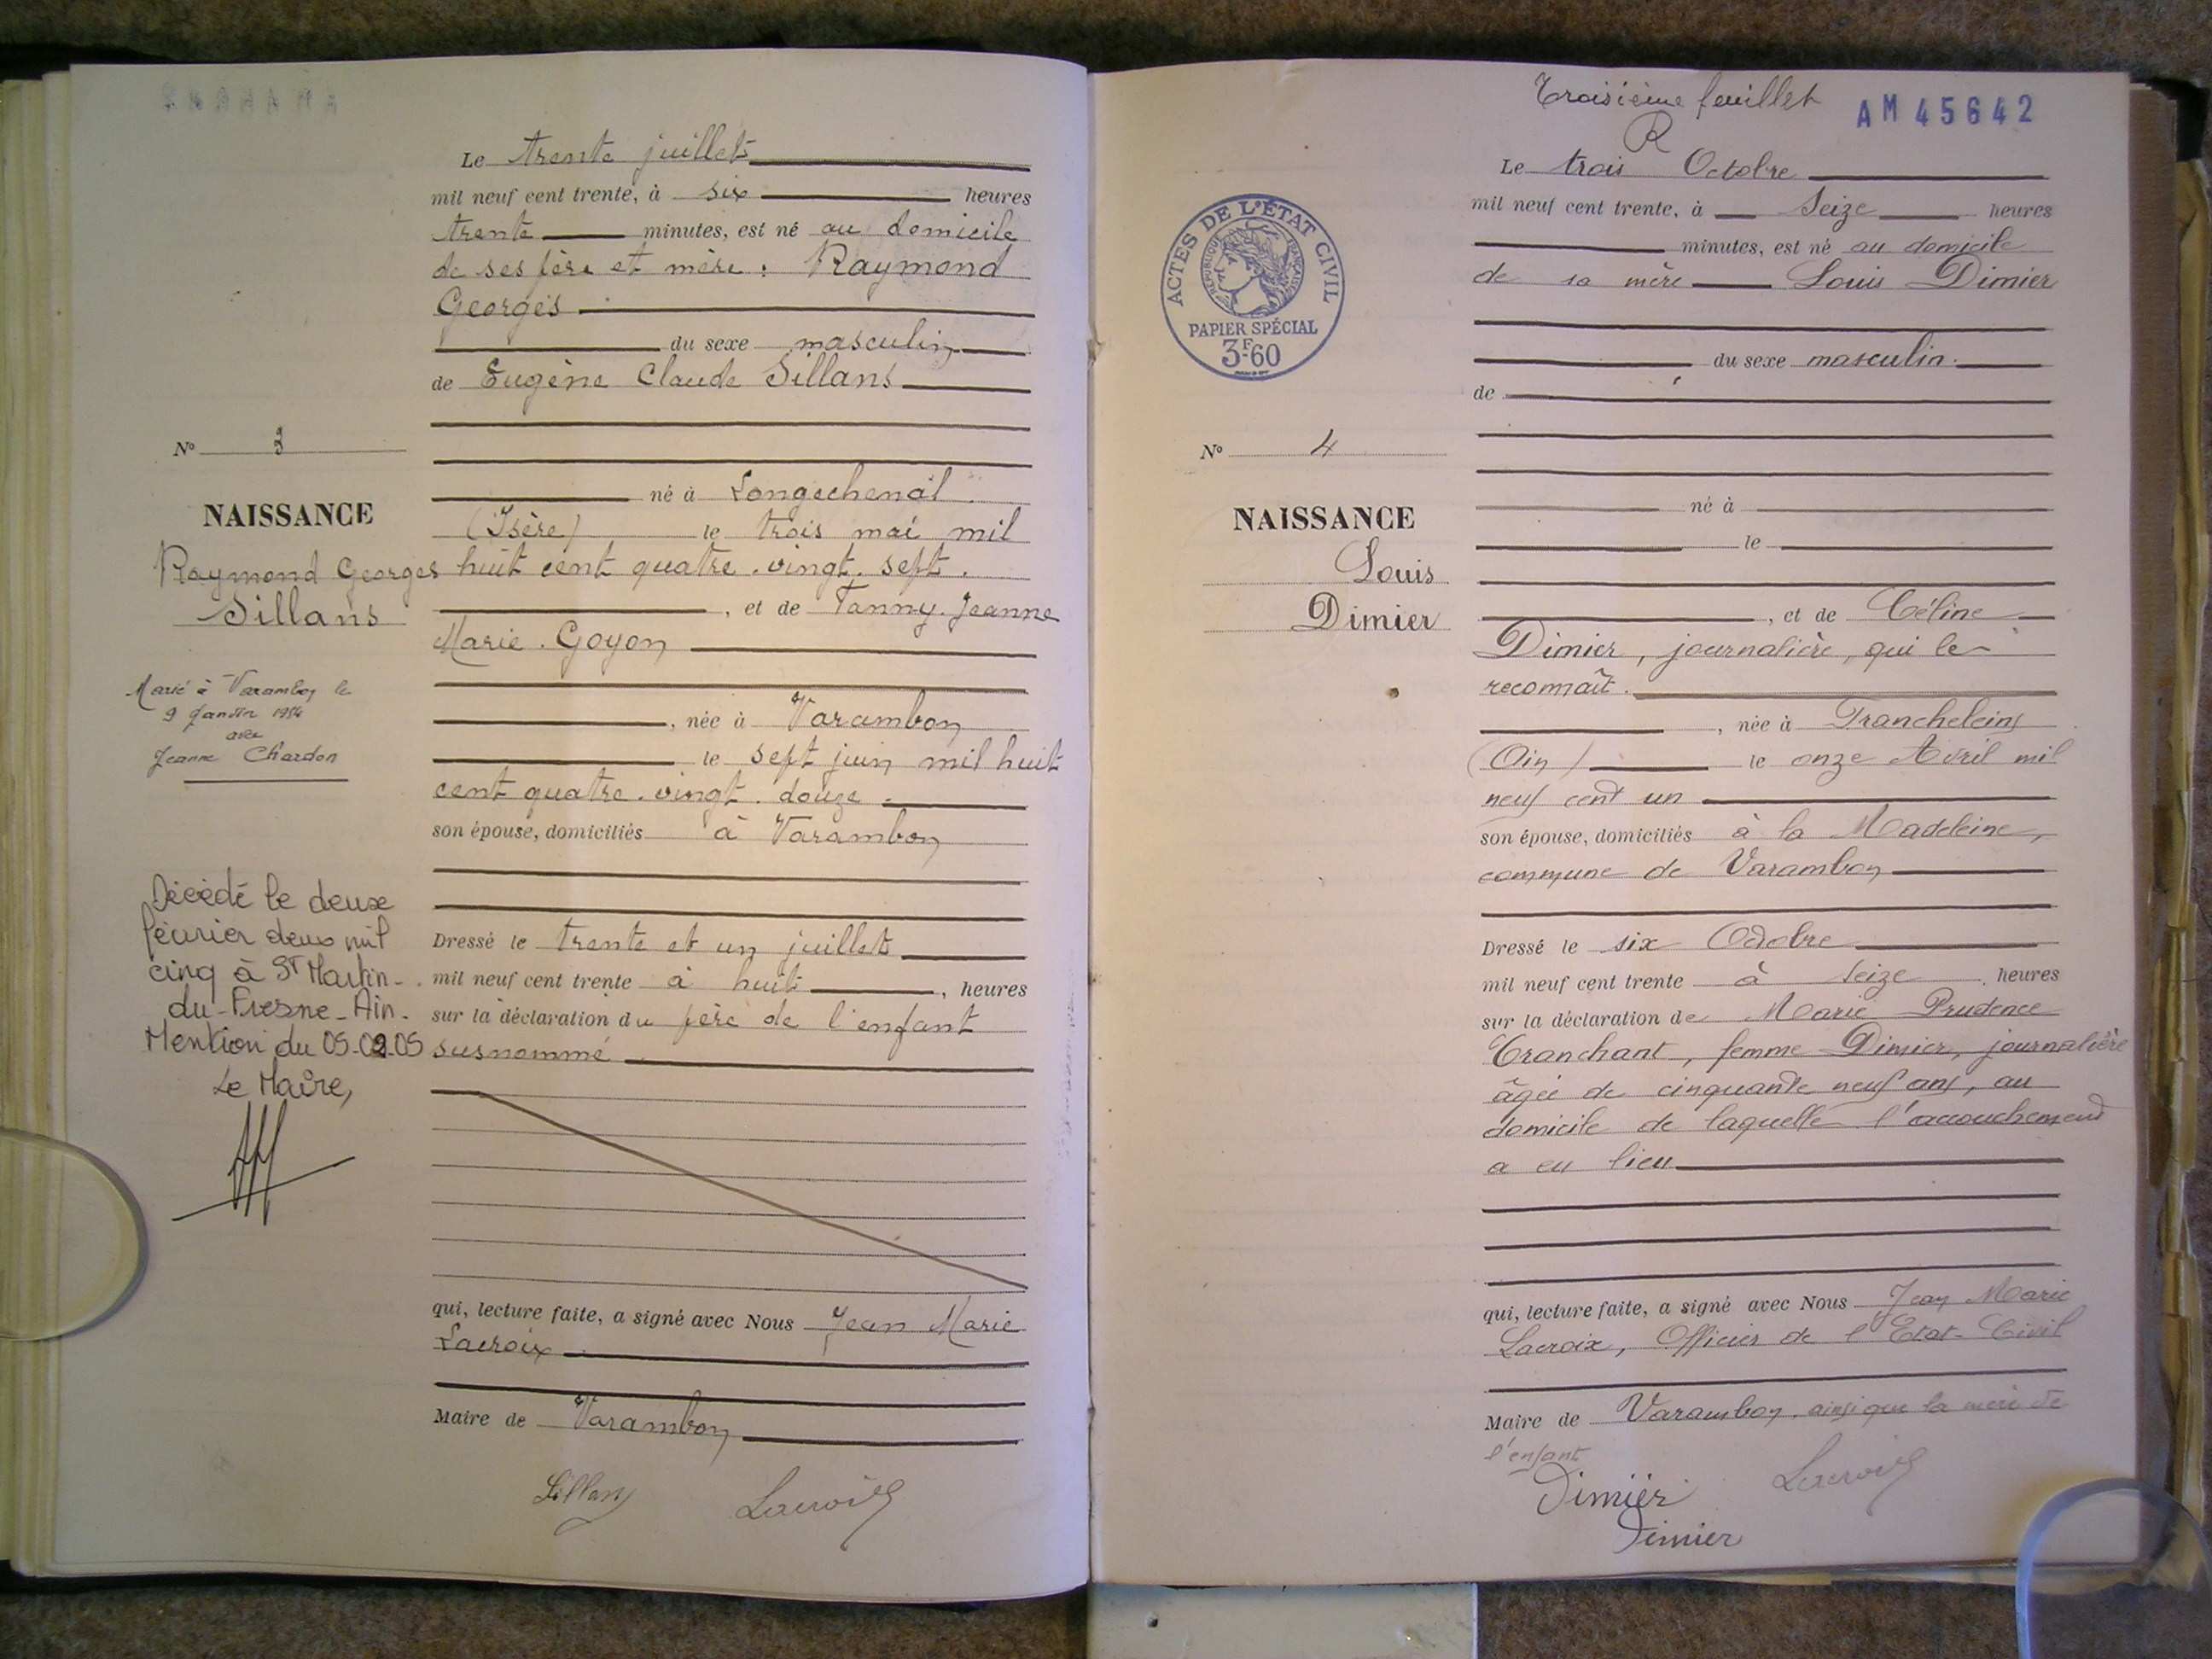 Le trente juillet
mil neuf cent trente, à six heures
trente minutes, est né au domicile
de ses père et mère : Raymond
Georges
du sexe masculin
de Eugène Claude Sillans
né à Longechenal
(Isère) le trois mai mil
huit cent quatre-vingt-sept.
, et de Fanny Jeanne
Marie Goyon
, née à Varambon
le sept juin mil huit
cent quatre-vingt-douze
son épouse, domiciliés à Varambon
Dressé le trente et un juillet
mil neuf cent trente à huit, heures
sur la déclaration du père de l'enfant
susnommé
qui, lecture faite, a signé avec Nous Jean Marie
Lacroix
Maire de Varambon
Sillans Lacroix
No 3
NAISSANCE
Raymond Georges
Sillans
Marié à Varambon le
9 Janvier 1954
avec
Jeanne Chardon
Décédé le deux
février deux mil
cinq à St Martin-
du-Fresne-Ain-
Mention du 05-02-05
Le Maire,
Troisième feuillet
AM 45642
R
ACTES DE L'ÉTAT CIVIL
RÉPUBLIQUE FRANÇAISE
PAPIER SPÉCIAL
3F.60
No 4
NAISSANCE
Louis
Dimier
Le trois Octobre
mil neuf cent trente, à Seize heures
minutes, est né au domicile
de sa mère Louis Dimier
du sexe masculin.
de
né à
le
, et de Céline
Dimier, journalière, qui le
reconnaît.
, née à Francheleins
(Ain) le onze Avril mil
neuf cent un
son épouse, domiciliés à la Madeleine,
commune de Varambon
Dressé le six Octobre
mil neuf cent trente à seize heures
sur la déclaration de Marie Prudence
Tranchant, femme Dimier, journalière
âgée de cinquante neuf ans, au
domicile de laquelle l'accouchement
a eu lieu
qui, lecture faite, a signé avec Nous Jean Marie
Lacroix, Officier de l'Etat-Civil
Maire de Varambon, ainsi que la mère de
l'enfant
Dimier Lacroix
Dimier